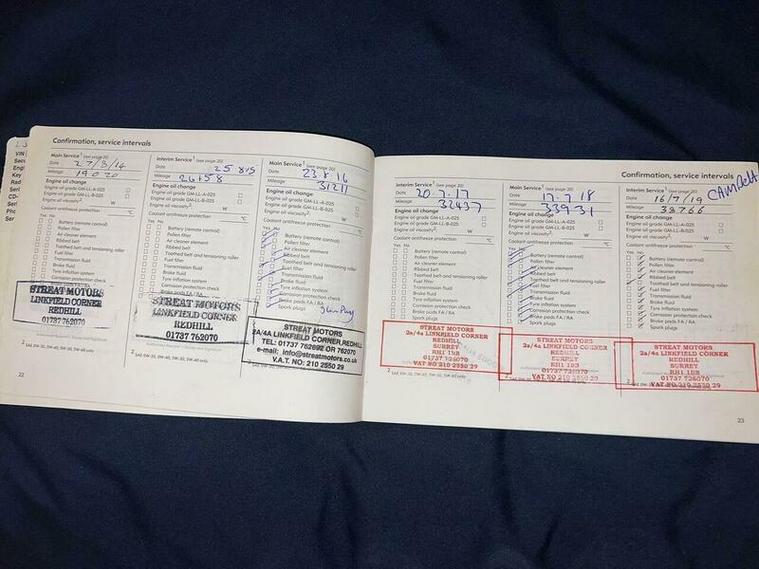 Confirmation, service intervals
Main Service¹ (see page 20)
Date 27/3/14
Mileage 19020
Engine oil change
Engine oil grade GM-LL-A-025
Engine oil grade GM-LL-B-025
Engine oil viscosity² W
Coolant antifreeze protection °C
Yes No
Battery (remote control)
Pollen filter
Air cleaner element
Ribbed belt
Toothed belt and tensioning roller
Fuel filter
Transmission fluid
Brake fluid
Tyre inflation system
Corrosion protection check
Brake pads FA / RA
STREAT MOTORS
LINKFIELD CORNER
REDHILL
01737 762070
22
Interim Service¹ (see page 20)
Date 25 8 15
Mileage 26158
Engine oil change
Engine oil grade GM-LL-A-025
Engine oil grade GM-LL-B-025
Engine oil viscosity² W
Coolant antifreeze protection °C
Yes No
Battery (remote control)
Pollen filter
Air cleaner element
Ribbed belt
Toothed belt and tensioning roller
Fuel filter
Transmission fluid
Brake fluid
Tyre inflation system
Corrosion protection check
Brake pads FA / RA
STREAT MOTORS
LINKFIELD CORNER
REDHILL
01737 762070
Main Service¹ (see page 20)
Date 23 8 16
Mileage 31211
Engine oil change
Engine oil grade GM-LL-A-025
Engine oil grade GM-LL-B-025
Engine oil viscosity² W
Coolant antifreeze protection °C
Yes No
Battery (remote control)
Pollen filter
Air cleaner element
Ribbed belt
Toothed belt and tensioning roller
Fuel filter
Transmission fluid
Brake fluid
Tyre inflation system
Corrosion protection check
Brake pads FA / RA
Spark plugs
STREAT MOTORS
2A/4A LINKFIELD CORNER, REDHILL
TEL: 01737 762692 OR 762070
e-mail: info@streatmotors.co.uk
V.A.T. NO: 210 2550 29
Confirmation, service intervals
Interim Service¹ (see page 20)
Date 20 7 17
Mileage 32437
Engine oil change
Engine oil grade GM-LL-A-025
Engine oil grade GM-LL-B-025
Engine oil viscosity² W
Coolant antifreeze protection °C
Yes No
Battery (remote control)
Pollen filter
Air cleaner element
Ribbed belt
Toothed belt and tensioning roller
Fuel filter
Transmission fluid
Brake fluid
Tyre inflation system
Corrosion protection check
Brake pads FA / RA
Spark plugs
STREAT MOTORS
2a/4a LINKFIELD CORNER
REDHILL
SURREY
RH1 1BB
01737 726070
VAT NO 210 2550 29
Main Service¹ (see page 20)
Date 17-7 18
Mileage 33931
Engine oil change
Engine oil grade GM-LL-A-025
Engine oil grade GM-LL-B-025
Engine oil viscosity² W
Coolant antifreeze protection °C
Yes No
Battery (remote control)
Pollen filter
Air cleaner element
Ribbed belt
Toothed belt and tensioning roller
Fuel filter
Transmission fluid
Brake fluid
Tyre inflation system
Corrosion protection check
Brake pads FA / RA
Spark plugs
STREAT MOTORS
2a/4a LINKFIELD CORNER
REDHILL
SURREY
RH1 1BB
01737 726070
VAT NO 210 2550 29
Interim Service¹ (see page 20)
Date 16/7/19 CAMBELT
Mileage 38766
Engine oil change
Engine oil grade GM-LL-A-025
Engine oil grade GM-LL-B-025
Engine oil viscosity² W
Coolant antifreeze protection °C
Yes No
Battery (remote control)
Pollen filter
Air cleaner element
Ribbed belt
Toothed belt and tensioning roller
Fuel filter
Transmission fluid
Brake fluid
Tyre inflation system
Corrosion protection check
Brake pads FA / RA
Spark plugs
STREAT MOTORS
2a/4a LINKFIELD CORNER
REDHILL
SURREY
RH1 1BB
01737 726070
VAT NO 210 2550 29
23